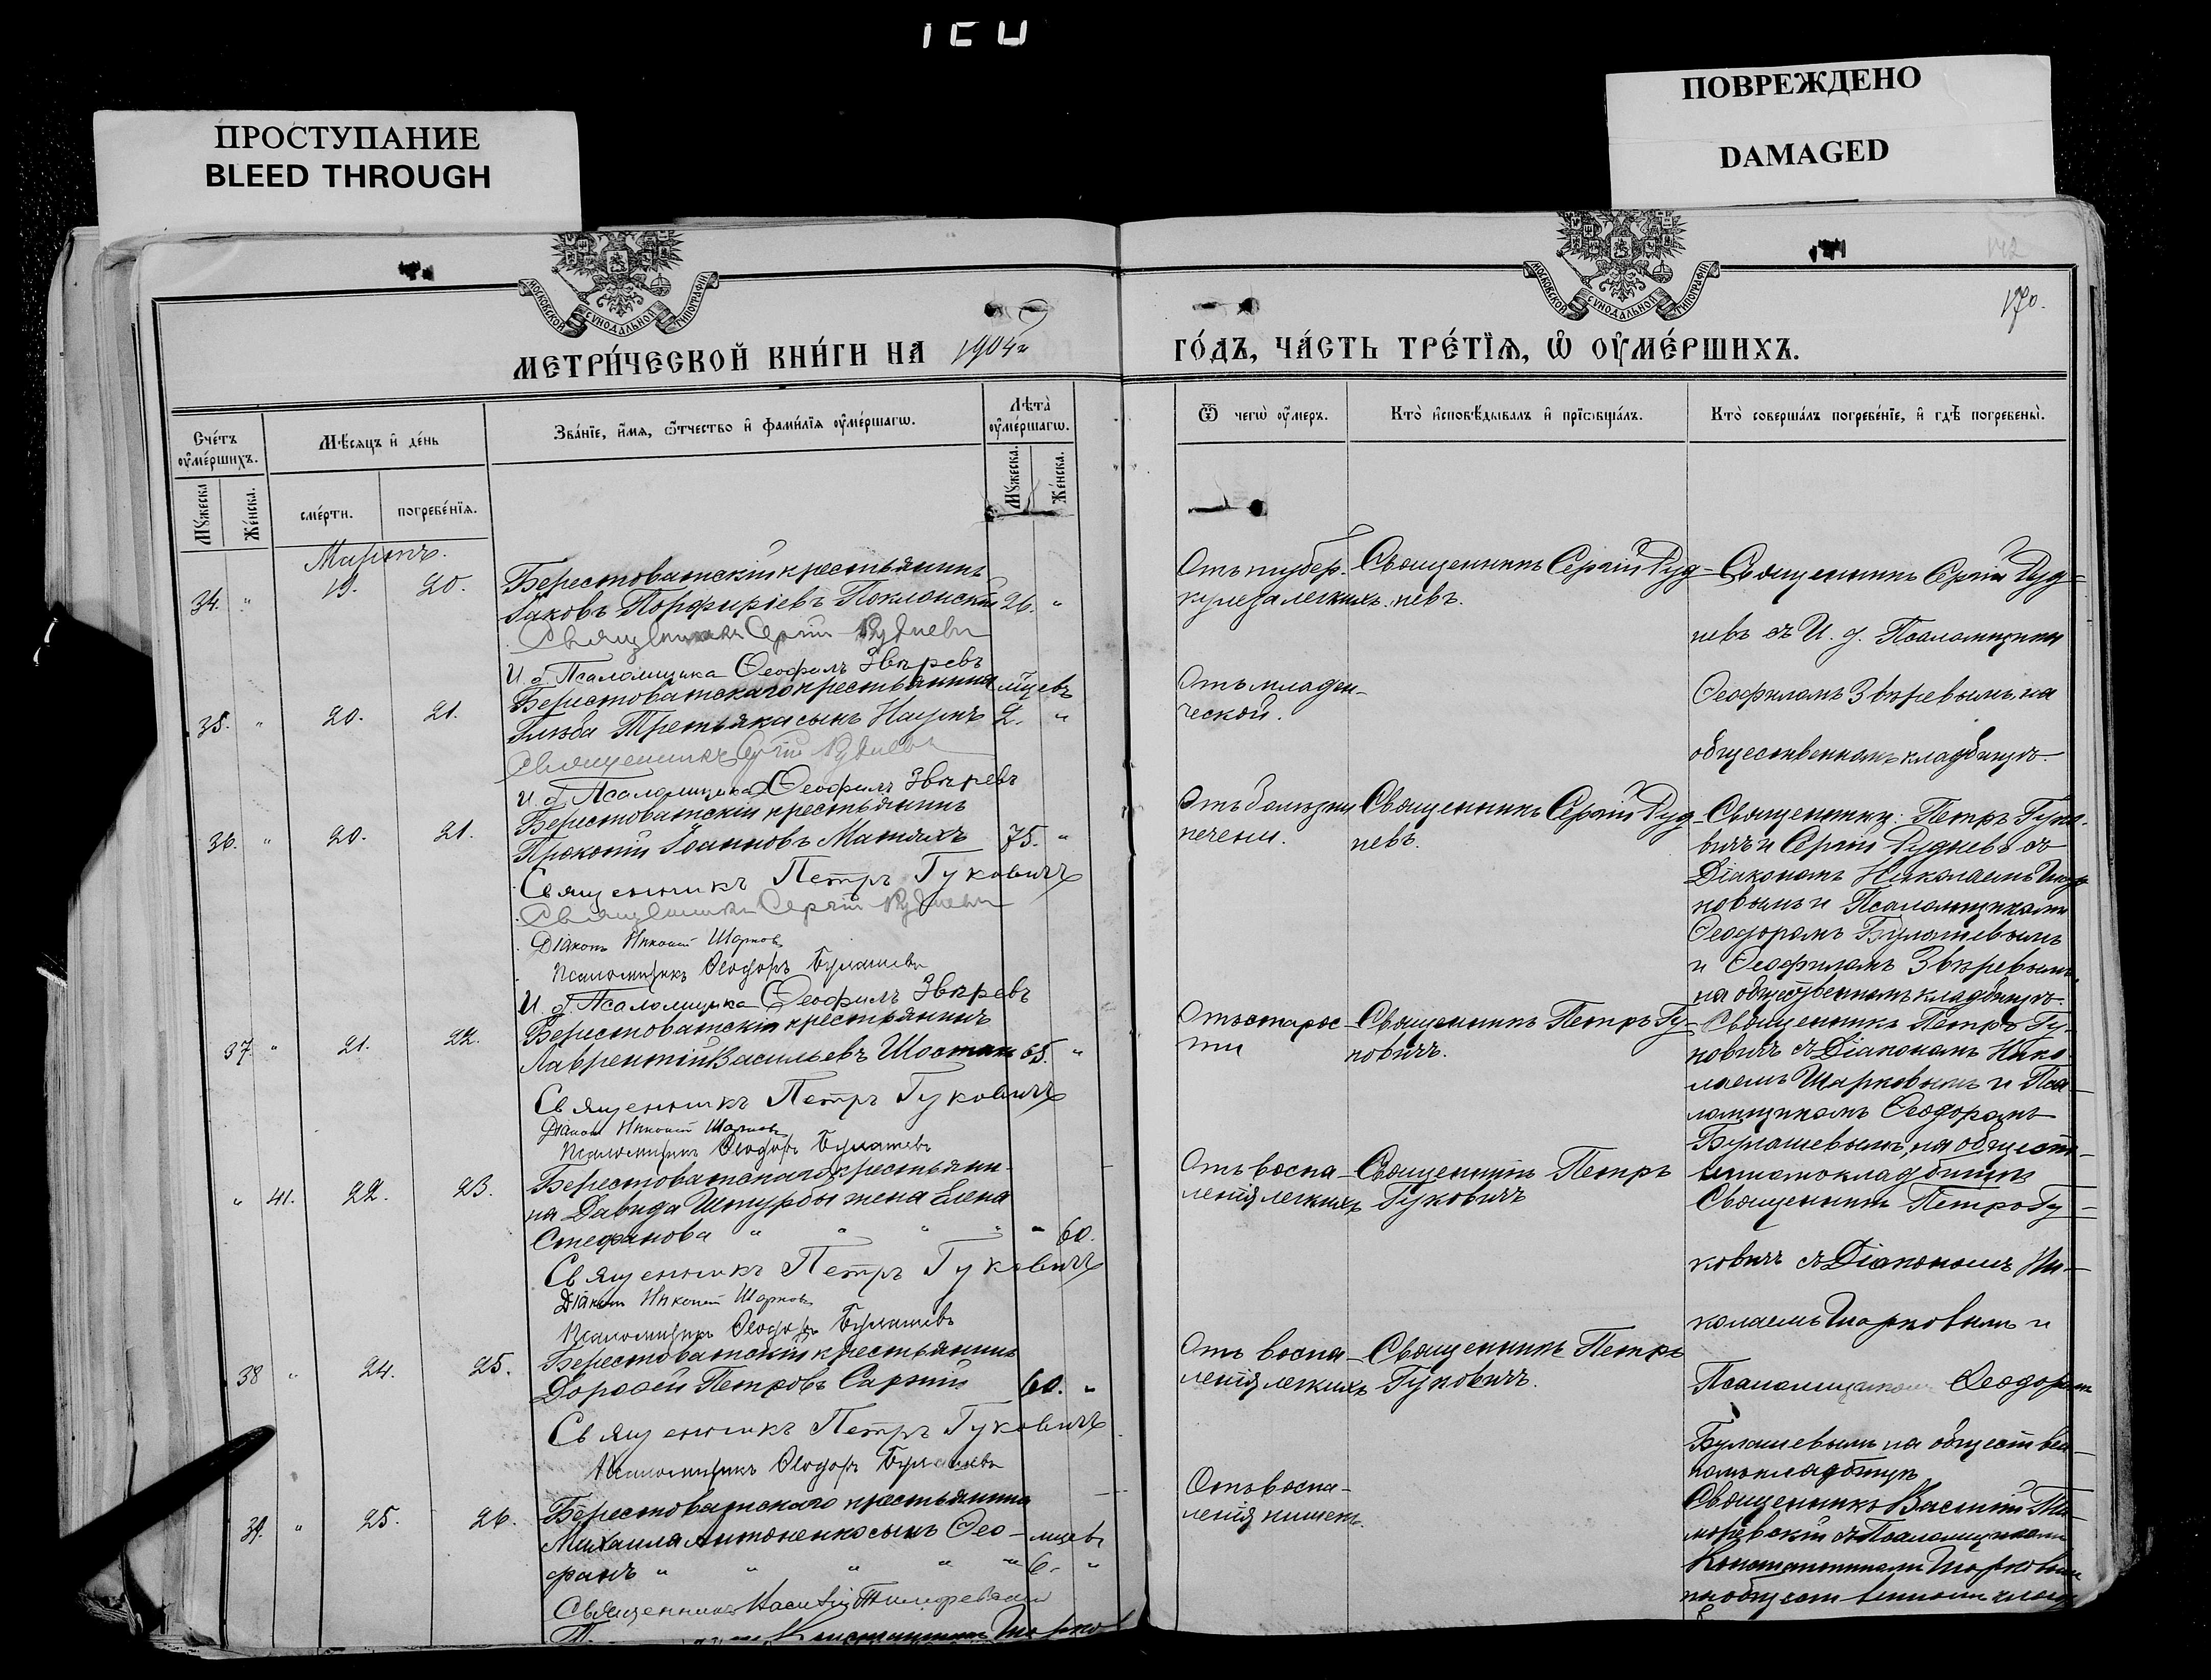 ПРОСТУПАНИЕ
BLEED THROUGH
ПОВРЕЖДЕНО
DAMAGED
МОСКОВСКОЙ СѴНОДАЛЬНОЙ ТИПОГРАФІИ
МОСКОВСКОЙ СѴНОДАЛЬНОЙ ТИПОГРАФІИ
172
170.
МЕТРИ́ЧЕСКОЙ КНИ́ГИ НА 1904 г
ГО́ДЪ, ЧА́СТЬ ТРЕ́ТЇѦ, Ѡ ОУМЕ́РШИХЪ.
Сче́тъ оуме́ршихъ.
Мѣ́сяцъ и де́нь
Зва́нїе, и́мѧ, ѻ҆́тчество и фами́лїѧ оуме́ршагѡ.
Лѣта̀ оуме́ршагѡ.
Мꙋжеска
Же́нска.
сме́рти.
погребе́нїѧ.
Мꙋжеска.
Же́нска.
Ѿ чегѡ̀ оу́меръ.
Кто̀ исповѣ́дывалъ и прїѡбща́лъ.
Кто̀ соверша́лъ погребе́нїе, и гдѣ̀ погребены̀.
Мартъ.
34. " 19. 20. Берестоватскій крестьянинъ
Іаковъ Порфиріевъ Поклонскій 26. "
Священникъ Сергій Рудневъ
И. д. Псаломщика Ѳеофилъ Звѣревъ
Отъ тубер-
кулеза легкихъ.
Священникъ Сергій Руд-
невъ.
Священникъ Сергій Руд-
невъ съ И. д. Псаломщика
Ѳеофиломъ Звѣревымъ, на
общественномъ кладбищѣ.
35. " 20. 21. Берестоватскаго крестьянина мцевъ
Глѣба Третьяка сынъ Наумъ 2. "
Священникъ Сергій Рудневъ
И. д. Псаломщика Ѳеофилъ Звѣревъ
Отъ младен-
ческой.
36. " 20. 21. Берестоватскій крестьянинъ
Прокопій Іоанновъ Матяхъ 75. "
Священникъ Петръ Гуковичъ
Священникъ Сергій Рудневъ
Діаконъ Николай Шарковъ
Псаломщикъ Ѳеодоръ Булашевъ
И. д. Псаломщика Ѳеофилъ Звѣревъ
Отъ болѣзни
печени.
Священникъ Сергій Руд-
невъ.
Священники: Петръ Гуко-
вичъ и Сергій Рудневъ съ
Діакономъ Николаемъ Шар-
ковымъ и Псаломщиками
Ѳеодоромъ Булашевымъ
и Ѳеофиломъ Звѣревымъ,
на общественномъ кладбищѣ.
37. " 21. 22. Берестоватскій крестьянинъ
Лаврентій Васильевъ Шостак 65. "
Священникъ Петръ Гуковичъ
Діаконъ Николай Шарковъ
Псаломщикъ Ѳеодоръ Булашевъ
Отъ старос-
ти
Священникъ Петръ Гу-
ковичъ.
Священникъ Петръ Гу-
ковичъ съ Діакономъ Нико-
лаемъ Шарковымъ и Пса-
ломщикомъ Ѳеодоромъ
Булашевымъ, на общест-
венномъ кладбищѣ
" 41. 22. 23. Берестоватскаго крестьяни-
на Давида Шпурды жена Елена
Стефанова " " " " " 60.
Священникъ Петръ Гуковичъ
Діаконъ Николай Шарковъ
Псаломщикъ Ѳеодоръ Булашевъ
Отъ воспа-
ленія легкихъ
Священникъ Петръ
Гуковичъ
Священникъ Петръ Гу-
ковичъ съ Діакономъ Ни-
колаемъ Шарковымъ и
Псаломщикомъ Ѳеодоромъ
Булашевымъ на обществен-
номъ кладбищѣ
38 " 24. 25. Берестоватскій крестьянинъ
Дороѳей Петровъ Саржій 60. "
Священникъ Петръ Гуковичъ
Псаломщикъ Ѳеодоръ Булашевъ
Отъ воспа-
ленія легкихъ
Священникъ Петръ
Гуковичъ.
39. " 25. 26. Берестоватскаго крестьянина
Михаила Антоненко сынъ Ѳео- мцевъ
фанъ " " " " 6. "
Священникъ Василій
Константинъ Шарков
Отъ воспа-
ленія кишекъ.
Священникъ Василій
съ Псаломщикомъ
Константиномъ Шарковым
на общественномъ клад